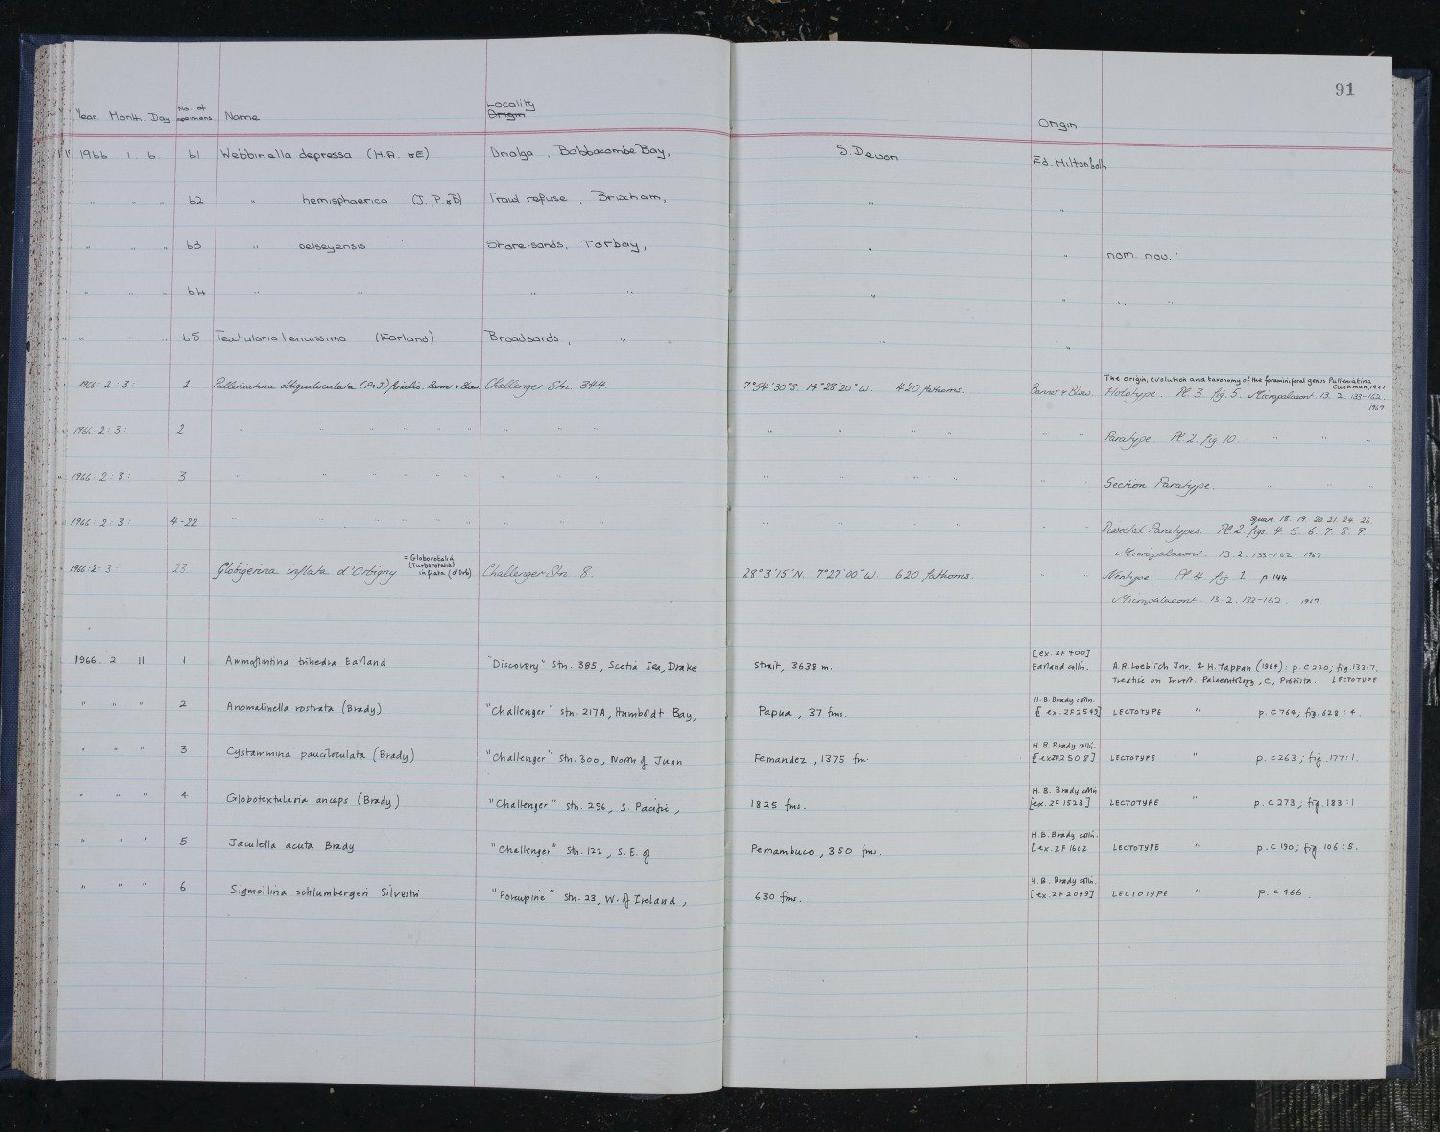 91
Year Month Day No. of specimens Name Locality Origin Origin
1966 1. 6. 61 Webbinella depressa (H.A. & E) Babbacombe Bay, S. Devon
" " " 62 " hemisphaerica (J. P. & B) Trawl refuse, Brixham, " "
" " " 63 " Shore-sands, Torbay, " " nom. nov.
" " " 64 " " " " " " " "
" " " 65 Textularia tenuissima (Earland) Broadsands, " " "
The origin, evolution and taxonomy of the foraminiferal genus Pulleniatina Cushman, 1927
1966: 2: 3: 1 Pulleniatina obliquiloculata (P & J) Banner & Blow. Challenger Stn. 344. 7°54'30"S. 14°28'20"W. 420 fathoms. Banner & Blow. Holotype. Pl. 3. fig. 5. Micropalaeont. 13. 2. 133-162. 1967
1966: 2: 3: 2 " " " " " " " " " " " " " " Paratype Pl. 2. fig. 10. " " "
1966: 2: 3: 3 " " " " " " " " " " " " " " Section Paratype. " " "
18. 19. 20. 21. 24. 26.
1966: 2: 3: 4-22 " " " " " " " " " " " " " " Dissected Paratypes. Pl. 2. figs. 4. 5. 6. 7. 8. 9.
Micropalaeont. 13. 2. 133-162 1967
= Globorotalia (Turborotalia) inflata (d'Orb)
1966: 2: 3: 23 Globigerina inflata d'Orbigny Challenger Stn. 8. 28°3'15"N. 7°27'00"W. 620 fathoms. " " Neotype Pl. 4. fig. 1. p 144
Micropalaeont. 13. 2. 133-162. 1967
[ex. ZF 400]
1966. 2 11 1 Ammoflintina trihedra Earland "Discovery" Stn. 385, Scotia Sea, Drake Strait, 3638 m. Earland colln. A.R. Loeblich Jnr. & H. Tappan (1964): p. C 220; fig. 133:7.
Treatise on Invert. Palaeontology, C, Protista. LECTOTYPE
H. B. Brady colln.
" " " 2 Anomalinella rostrata (Brady) "Challenger" Stn. 217A, Humboldt Bay, Papua, 37 fms. LECTOTYPE " p. C 764; fig. 628:4.
H. B. Brady colln.
" " " 3 Cystammina pauciloculata (Brady) "Challenger" Stn. 300, North of Juan Fernandez, 1375 fm. [ex ZF 2508] LECTOTYPE " p. C 263; fig. 177:1.
H. B. Brady colln
" " " 4 Globotextularia anceps (Brady) "Challenger" Stn. 256, S. Pacific, 1825 fms. [ex. ZF 1523] LECTOTYPE " p. C 273; fig. 183:1
H. B. Brady colln.
" " " 5 Jaculella acuta Brady "Challenger" Stn. 122, S.E. of Pernambuco, 350 fms. [ex. ZF 1602 LECTOTYPE " p. C 190; fig 106:5.
H. B. Brady colln.
" " " 6 Sigmoilina schlumbergeri Silvestri "Porcupine" Stn. 23, W. of Ireland, 630 fms. LECTOTYPE " p. C 466.